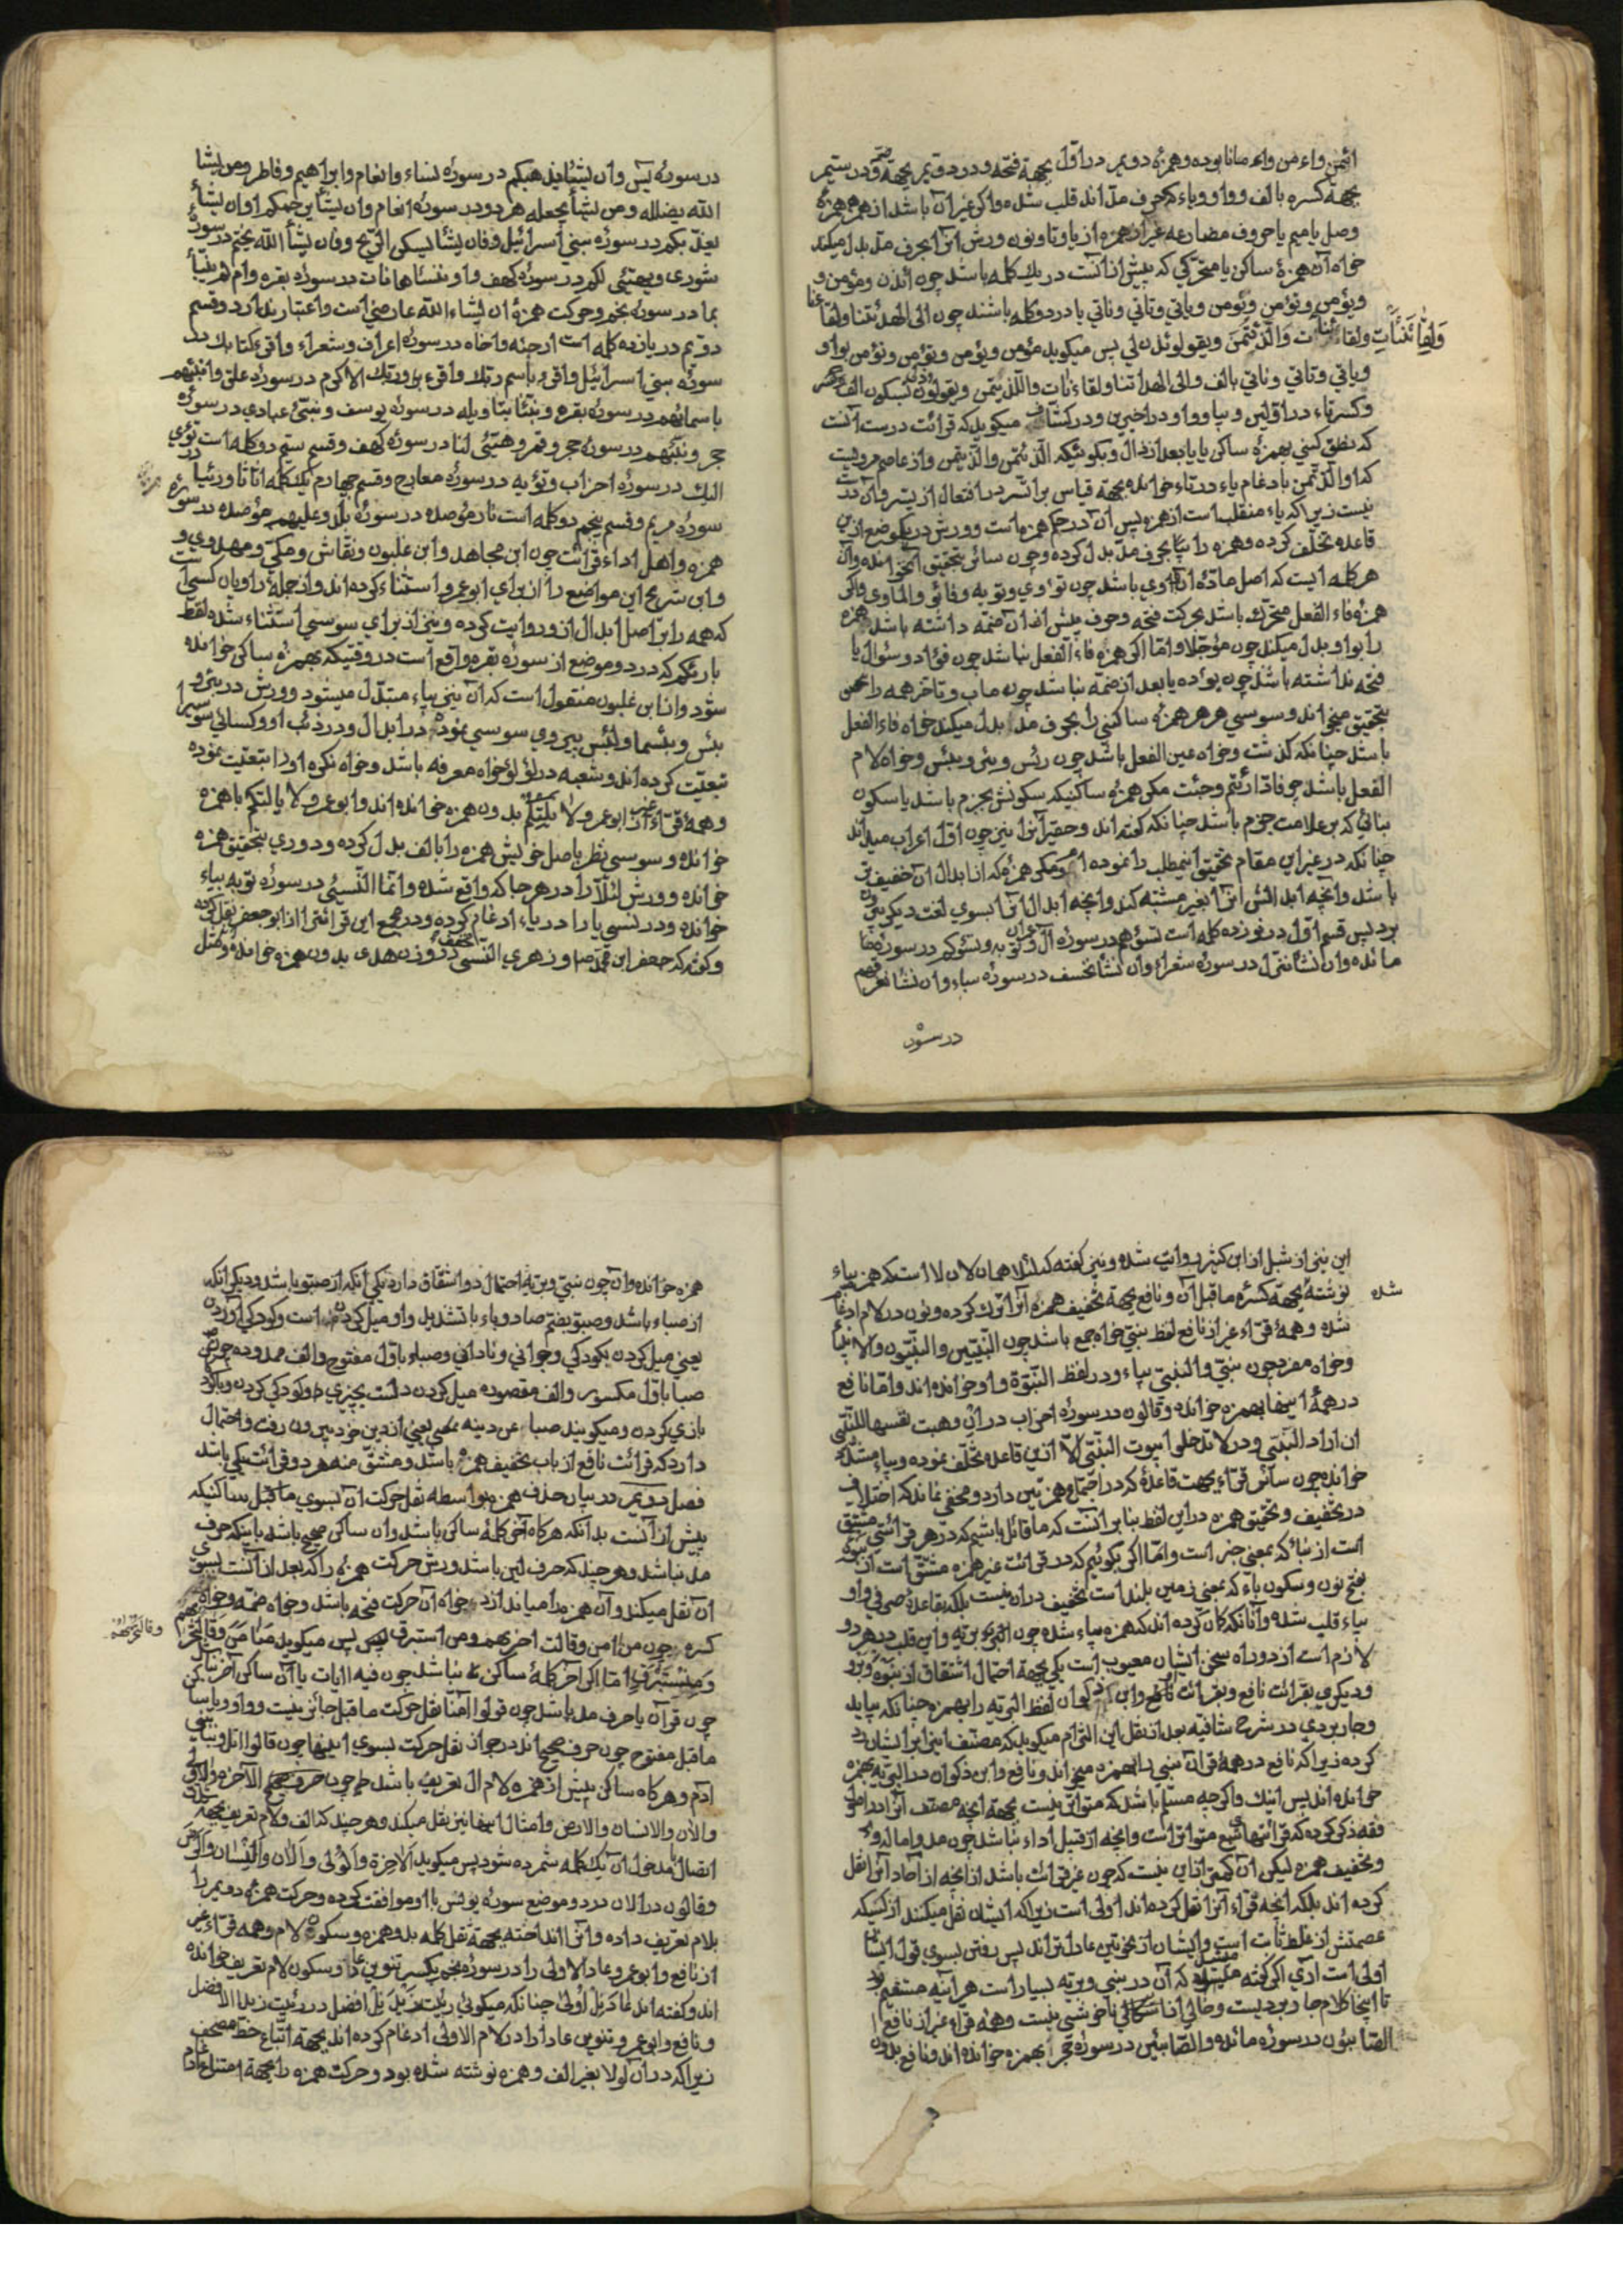 ائتمن واءمن وایمانا بوده و همزه دویم در اوّل بجهة فتحه و در دویم بجهة ضمّه و در سیّم
بجهة کسره بالف و واو ویاء که حرف مدّ اند قلب شده و اکر غیر آن باشد از همزه
وصل یا میم یا حروف مضارعه غیر از همزه از یا و تا و نون ورش انرا بحرف مدّ بدل میکند
خواه آن همزهٔ ساکن یا متحرّکی که پیش از آنست در یک کلمه باشد چون ائذن و مؤمن و
و یؤمن و تؤمن و نؤمن و یاتی و تاتی و ناتی یا در دو کلمه باشند چون الی الهدی ئتنا ولقاءنا
ئت والّذی ئتمن ویقولوئذن لی پس میکوید مؤمن و یؤمن و تؤمن و نؤمن بواو
و یاتی و تاتی و ناتی بالف والی الهداتنا ولقاءنات والّلذیتمن ویقولوذن بسکون الف
و کسر تاء در اوّلین و بیا و واو در اخیرین و در کشّاف میکوید که قرائت درست آنست
که نطق کنی بهمزه ساکن یا یا بعد از ذال و بکوئیکه الّذئتمن والّذیتمن و از عاصم مرویست
که او الّذتّمن بادغام یاء در تاء خوانده بجهة قیاس بر اتّسر در افتعال از یسر و آن درست
نیست زیرا که یاء منقلب است از همزه پس آن در حکم همزه است و ورش در یکموضع ازین
قاعده تخلّف کرده و همزه را بحرف مدّ بدل نکرده و چون سائر بتحقیق خوانده و آن
هر کلمه ایست که اصل مادّه آن اوی باشد چون تؤوی و تؤیه و فائو و الماوی و اکر
همزه فاء الفعل متحرّک باشد بحرکت فتحه و حرف پیش از ان ضمّه داشته باشد همزه
را بواو بدل میکند چون مؤجّلا و امّا اکر همزه فاء الفعل نباشد چون فؤاد و سؤال یا
فتحه نداشته باشد چون یؤده یا بعد از ضمّه نباشد چون ماب و تاخر همه را
بتحقیق میخواند و سوسی هر همزه ساکنی را بحرف مدّ بدل میکند خواه فاء الفعل
باشد چنانکه کذشت و خواه عین الفعل باشد چون رئس و بئی و بئس و خواه لام
الفعل باشد چو فادّارئتم و جئت مکر همزه ساکنیکه سکونش بجزم باشد یا سکون
بنائی که بر علامت جزم باشد چنانکه کفته اند و حقیر انرا نیز چون اوّل اعراب میداند
چنانکه در غیر این مقام تحقیق اینمطلب را نموده ام و مکر همزه که از ابدال آن خفیف تر
باشد و آنچه ابدالش انرا بغیر مشتبه کند و آنچه ابدال انرا بسوی لغت دیکر بیرون
برد پس قسم اوّل در نوزده کلمه است تسؤهم در سوره آل عمران و توبه و تسؤکم در سوره
مائده و ان نشاننزّل در سوره شعراء و ان نشانخسف در سوره سباء و ان نشانغرقهم
در سوره
وَلِقَائَنَائْتِ
در سورهٔ یس و ان یشایذهبکم در سوره نساء و انعام و ابراهیم و فاطر و من یشا
الله یضلله و من یشأ یجعله هر دو در سوره انعام و ان یشأ یرحمکم او ان یشأ
یعذّبکم در سوره بنی اسرائیل و فان یشأ یسکن الرّیح و فان یشأ الله یختم در سوره
شوری و یهیّئ لکم در سوره کهف و او ننساها نات در سوره بقره و ام لم ینبّأ
بما در سوره نجم و حرکت همزه ان یشاء الله عارضی است و اعتبار ندارد و قسم
دویم در یازده کلمه است ارجئه و اخاه در سوره اعراف و شعراء و اقرء کتابک در
سوره بنی اسرائیل و اقرء باسم ربّک و اقرء و ربّک الاکرم در سوره علق و انبئهم
باسمائهم در سوره بقره و نبّئنا بتاویله در سوره یوسف و نبّئ عبادی در سوره
حجر و نبّئهم در سوره حجر و قمر و هیّئی لنا در سوره کهف و قسم سیّم دو کلمه است تؤوی
الیک در سوره احزاب و تؤیه در سوره معارج و قسم چهارم یک کلمه اثاثا و رئیا در
سوره مریم و قسم پنجم دو کلمه است نار مؤصده در سوره بلد و علیهم مؤصده در سوره
همزه و اهل اداء قرائت چون ابن مجاهد و ابن غلبون و نقّاش و مکّی و مهدوی و
و ابن شریح این مواضع را از برای ابو عمرو استثناء کرده اند و از جمله راویان کسی است
که همه را بر اصل ابدال از او روایت کرده و نیز از برای سوسی استثناء شده لفظ
بارئکم که در دو موضع از سوره بقره واقع است در وقتیکه بهمزه ساکن خوانده
شود و از ابن غلبون منقول است که آن نیز بیاء مبدّل میشود و ورش در بئر و
بئس و بئسما و لبئس پیروی سوسی نموده در ابدال و در ذئب او و کسائی سوسی را
تبعیّت کرده اند و شعبه در لؤلؤ خواه معرفه باشد و خواه نکره او را تبعیّت نموده
و همه قرّاء غیر از ابو عمرو لا یلتکم بدون همزه خوانده اند و ابو عمرو لا یالتکم با همزه
خوانده و سوسی نظر باصل خویش همزه را بالف بدل کرده و دوری بتحقیق همزه
خوانده و ورش لئلّا را در هر جا که واقع شده و انّما النّسیئ در سوره توبه بیاء
خوانده و در نسی یا را در یاء ادغام کرده و در مجمع این قرائترا از ابو جعفر نقل کرده
و کفته که جعفر ابن محمّد و زهری النّسی در وزن هدی بدون همزه خوانده
این نیز از شبل از ابن کثیر روایت شده و نیز کفته که لئلا همان لان لا است که همزه بیاء
نوشته شده بجهة کسره ماقبل آن و نافع بجهة تخفیف همزه انرا ترک کرده و نون در لام ادغام
شده و همهٔ قرّاء غیر از نافع لفظ نبیّ خواه جمع باشد چون النّبیّین والنّبیّون و الانبیاء
و خواه مفرد چون نبیّ و النبیّ بیاء و در لفظ النبوّة واو خوانده اند و امّا نافع
در همهٔ اینها بهمزه خوانده و قالون در سوره احزاب در ان وهبت نفسها للنّبیّ
ان اراد النّبیّ و در لا تدخلوا بیوت النّبیّ الّا از این قاعده تخلّف نموده و بیاء مشدّده
خوانده چون سائر قرّاء بجهت قاعدهٔ که در اجتماع همزتین دارد و مخفی نماند که اختلاف
در تخفیف و تحقیق همزه در این لفظ بنا بر آنست که ما قائل باشیم که در هر قرائتی مشتق
است از نبأ که بمعنی خبر است و امّا اکر بکوئیم که در قرائت غیر همزه مشتقّ است از نبوه
بفتح نون و سکون باء که بمعنی زمین بلند است تخفیف در ان نیست بلکه بقاعدهٔ صرفی واو
بیاء قلب شده و آنانکه کمان کرده اند که همزه بیاء شده چون النبیّ و بریّه و این قلب در هر دو
لازم است از دو راه سخن ایشان معیوب است یکی بجهة احتمال اشتقاق از نبوة و برو
و دیکری بقرائت نافع و بقرائت نافع و ابن ذکوان لفظ البریّه را بهمزه چنانکه بیاید
و جاربردی در شرح شافیه بعد از نقل این الزام میکوید که مصنّف اینرا بر ایشان رد
کرده زیرا که نافع در همهٔ قرآن نبی را بهمزه میخواند و نافع و ابن ذکوان در البریّه بهمزه
خوانده اند پس اینک و اکرچه مسلّم باشد که متواتر نیست بجهة آنچه مصنّف آنرا در اصول
فقه ذکر کرده که قرائتهای سبع متواتر است و آنچه از قبیل اداء نباشد چون مد و اماله و
و تخفیف همزه لیکن آن کمتر از این نیست که چون غیر قرائت باشد از آنچه از آحاد آنرا نقل
کرده اند بلکه آنچه قرّاء آنرا نقل کرده اند اولی است زیرا که ایشان نقل میکنند از کسیکه
عصمتش از غلط ثابت است و ایشان از نحویّین عادل تراند پس رفتن بسوی قول ایشان
اولی است آری اکر کفته میشد که آن در نبی و بریّه بسیار است هر آینه مستقیم بود
تا اینجا کلام جاربردیست و خالی از ناخوشی نیست و همهٔ قرّاء غیر از نافع
الصّابئون در سوره مائده و الصّابئین در سوره بهمزه خوانده اند و نافع بدون
شده
همزه خوانده و ان چون نبیّ و بریّه احتمال دو اشتقاق دارد یکی آنکه از صبو باشد و دیکر آنکه
از صباء باشد و صبو بضمّ صاد و باء با تشدید واو میل کردن است و کودکی آوردن
یعنی میل کردن بکودکی و جوانی و نادانی و صباء باوّل مفتوح و الف ممدوده چون
صبا باوّل مکسور و الف مقصوده میل کردن دلست بچیزی و کودکی کردن و با کودک
بازی کردن و میکویند صبا عن دینه یعنی از دین خود بیرون رفت و احتمال
دارد که قرائت نافع از باب تخفیف همزه باشد و مشتقّ منه هر دو قرائت یکی باشد
فصل دویم در بیان حذف همزه بواسطه نقل حرکت ان بسوی ماقبل ساکنیکه
پیش از آنست بدانکه هر کاه آخر کلمهٔ ساکن باشد و ان ساکن صحیح باشد باینکه حرف
مدّ نباشد و هر چند که حرف لین باشد ورش حرکت همزه را که بعد از آنست بسوی
آن نقل میکند و آن همزه را میاندازد خواه آن حرکت فتحه باشد و خواه ضمّه و خواه
کسره چون من امن و قالت اخریهم و من استبرق پس میکوید مَنَامَنَ وَقَالَتُخْرَیهُم
وَمِنِسْتَبْرَقٍ امّا اکر آخر کلمهٔ ساکن نباشد چون فیه ایات یا آن ساکن آخر نباشد
چون قرآن یا حرف مد باشد چون قولوا امنّا نقل حرکت ماقبل جائز نیست و واو و یا ساکن
ماقبل مفتوح چون حرف صحیح اند در جواز نقل حرکت بسوی اینها چون قالوا اتل و نبأ ابنی
ادم و هر کاه ساکن پیش از همزه لام ال تعریف باشد چون الآخرة والاولی
والان والانسان والارض و امثال اینها نیز نقل میکند و هر چند که الف و لام تعریف بجهة
اتّصال مدخول ان یک کلمه شمرده شود پس میکوید اَلَاخِرَة وَالُولَی وَاَلَان وَالِنْسَان وَاَلَرْضَ
و قالون در الان در دو موضع سوره یونس با او موافقت کرده و حرکت همزه دویم را
بلام تعریف داده و انرا انداخته بجهة ثقل کلمه بدو همزه و سکون لام و همه قرّاء غیر
از نافع و ابو عمرو عادا لاولی را در سوره نجم بکسر تنوین عادا و سکون لام تعریف خوانده
اند و کفته اند عَادَنِلْ اُولَی چنانکه میکوئی رئیت زَیدَنِلْ افضل در رئیت زیدا الافضل
و نافع و ابو عمرو تنوین عادا را در لام الاولی ادغام کرده اند بجهة اتّباع خطّ مصحف
زیرا که در آن لولا بغیر الف و همزه نوشته شده بود و حرکت همزه را بجهة امتناع ادغام